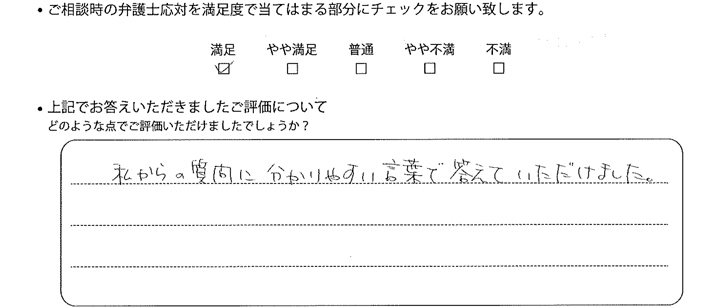 • ご相談時の弁護士応対を満足度で当てはまる部分にチェックをお願い致します。
満足 やや満足 普通 やや不満 不満
☑ □ □ □ □
• 上記でお答えいただきましたご評価について
どのような点でご評価いただけましたでしょうか？
私からの質問に分かりやすい言葉で答えていただけました。